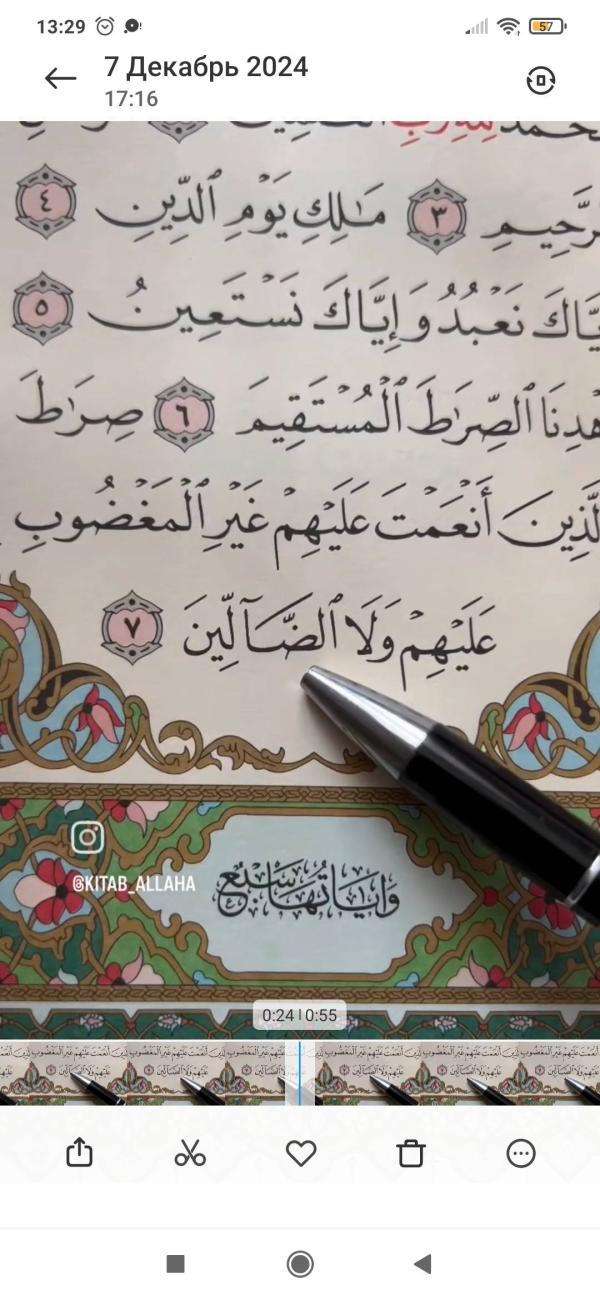 13:29
57
7 Декабрь 2024
17:16
مَٰلِكِ يَوْمِ ٱلدِّينِ ٤
٣
نَعْبُدُ وَإِيَّاكَ نَسْتَعِينُ ٥
ٱلصِّرَٰطَ ٱلْمُسْتَقِيمَ ٦ صِرَٰطَ
أَنْعَمْتَ عَلَيْهِمْ غَيْرِ ٱلْمَغْضُوبِ
عَلَيْهِمْ وَلَا ٱلضَّآلِّينَ ٧
@KITAB_ALLAHA
وَآيَاتُهَا سَبْعٌ
0:24 | 0:55